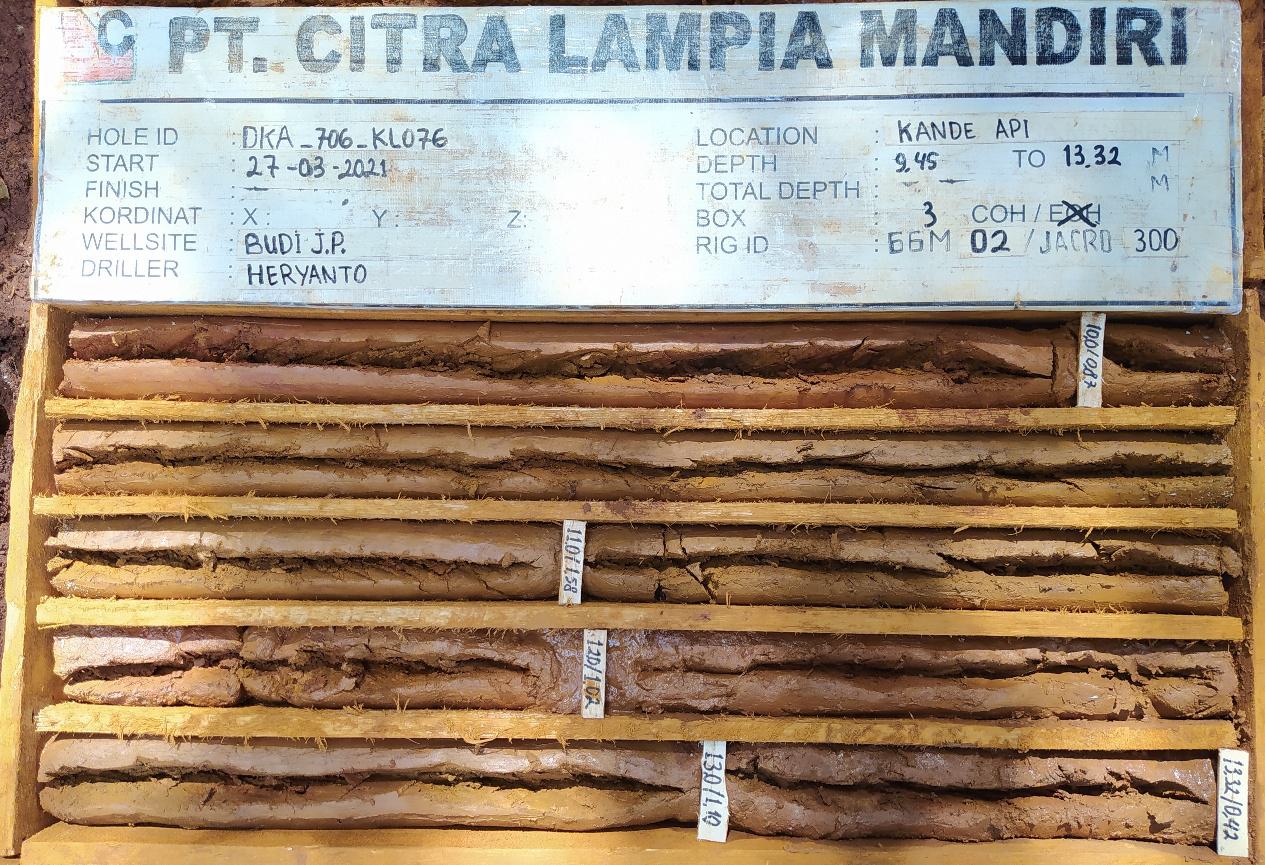 C PT. CITRA LAMPIA MANDIRI
HOLE ID : DKA_706_KL076
START : 27-03-2021
FINISH : —
KORDINAT : X: Y: Z:
WELLSITE : BUDI J.P.
DRILLER : HERYANTO
LOCATION : KANDE API
DEPTH : 9,45 TO 13,32 M
TOTAL DEPTH : — — M
BOX : 3 COH / EOH
RIG ID : BBM 02 / JACRO 300
10,0/0,87
11,0/1,58
12,0/1,02
13,0/1,10
13,32/0,42